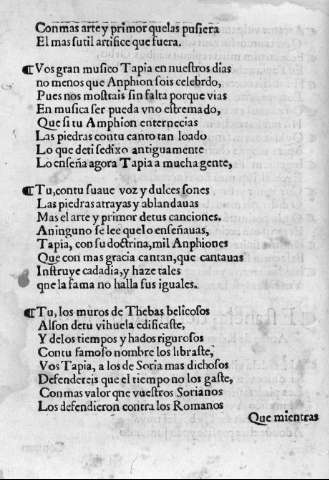 Con mas arte y primor quelas pusiera
El mas sutil artifice que fuera.
¶ Vos gran musico Tapia en nuestros dias
no menos que Anphion sois celebrdo,
Pues nos mostrais sin falta porque vias
En musica ser pueda vno estremado,
Que si tu Amphion enternecias
Las piedras contu canto tan loado
Lo que deti sedixo antiguamente
Lo enseña agora Tapia a mucha gente,
¶ Tu, contu suaue voz y dulces sones
Las piedras atrayas y ablandauas
Mas el arte y primor detus canciones.
Aninguno se lee quelo enseñauas,
Tapia, con su doctrina, mil Anphiones
Que con mas gracia cantan, que cantauas
Instruye cadadia, y haze tales
qne la fama no halla sus iguales.
¶ Tu, los muros de Thebas belicosos
Alson detu vihuela edificaste,
Y delos tiempos y hados rigurosos
Contu famoso nombre los libraste,
Vos Tapia, a los de Soria mas dichosos
Defendereis que el tiempo no los gaste,
Con mas valor qne vuestros Sorianos
Los defendieron contra los Romanos
Que mientras